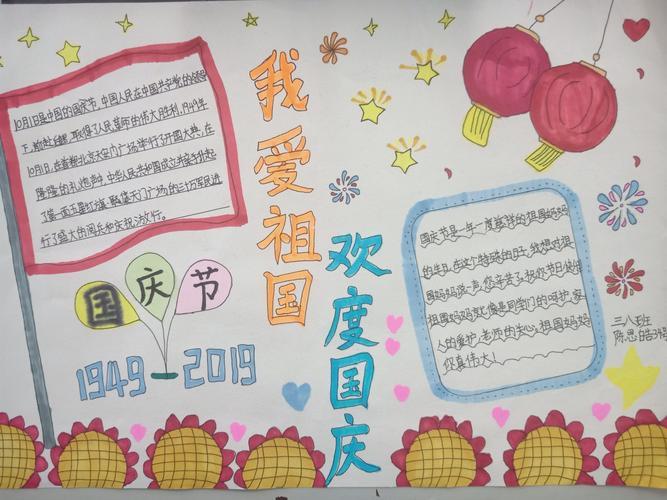 10月1日是中国的国庆节,中国人民在中国共产党的领导
下,前赴后继,取得了人民革命的伟大胜利,1949年
10月1日,在首都北京天安门广场举行了开国大典,在
隆隆的礼炮声,中华人民共和国成立
了第一面五星红旗,广场的三十万军民进
行了盛大的阅兵和庆祝游行。
我爱祖国
欢度国庆
国庆节
1949 2019
国庆节是一年一度慈祥的祖国妈妈
的生日,在这个特殊的日子,我想对祖
国妈妈说一声,您辛苦了,祝你节日快
祖国妈妈就像是同学们的呵护,家
人的爱护,老师的关心,祖国妈妈
你真伟大!
三八班
陈思皓